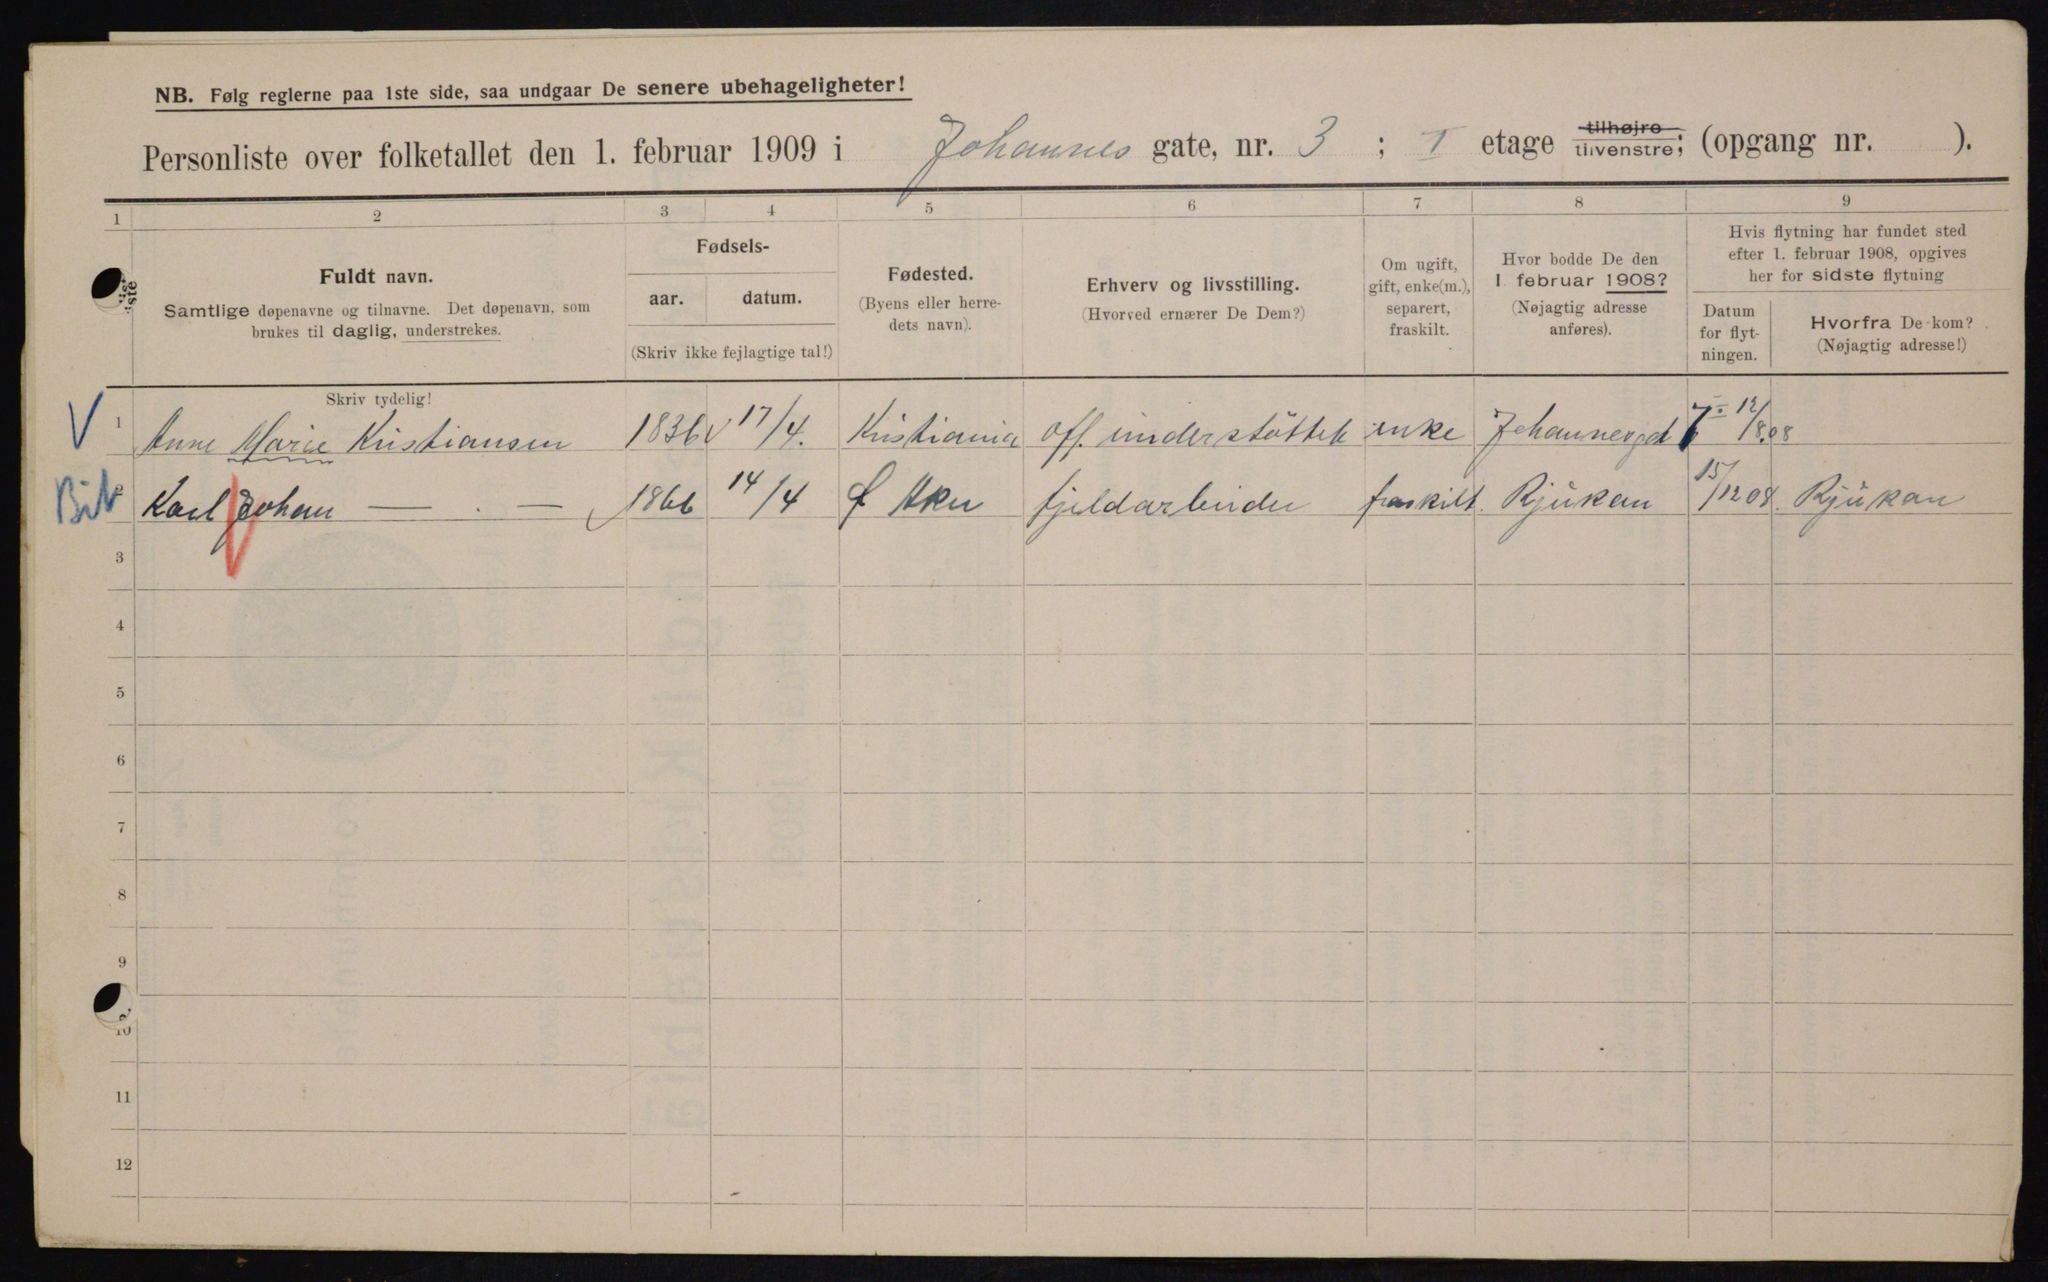 NB. Følg reglerne paa 1ste side, saa undgaar De senere ubehageligheter!
Personliste over folketallet den 1. februar 1909 i Johannes gate, nr. 3 ; I etage tilhøjre tilvenstre; (opgang nr. ).
1 2 3 4 5 6 7 8 9
Fuldt navn.
Samtlige døpenavne og tilnavne. Det døpenavn, som
brukes til daglig, understrekes.
Skriv tydelig!
Fødsels-
aar. datum.
(Skriv ikke fejlagtige tal!)
Fødested.
(Byens eller herre-
dets navn).
Erhverv og livsstilling.
(Hvorved ernærer De Dem?)
Om ugift,
gift, enke(m.),
separert,
fraskilt.
Hvor bodde De den
1. februar 1908?
(Nøjagtig adresse
anføres).
Hvis flytning har fundet sted
efter 1. februar 1908, opgives
her for sidste flytning
Datum
for flyt-
ningen.
Hvorfra De kom?
(Nøjagtig adresse!)
V 1 Anne Marie Kristiansen 1836 17/4. Kristiania off. understöttet enke Johannesgd 7 12/8.08
2 Karl Johan — . — 1866 14/4 Ø Aker fjeldarbeider fraskilt. Rjukan 15/12 08. Rjukan
3
4
5
6
7
8
9
10
11
12